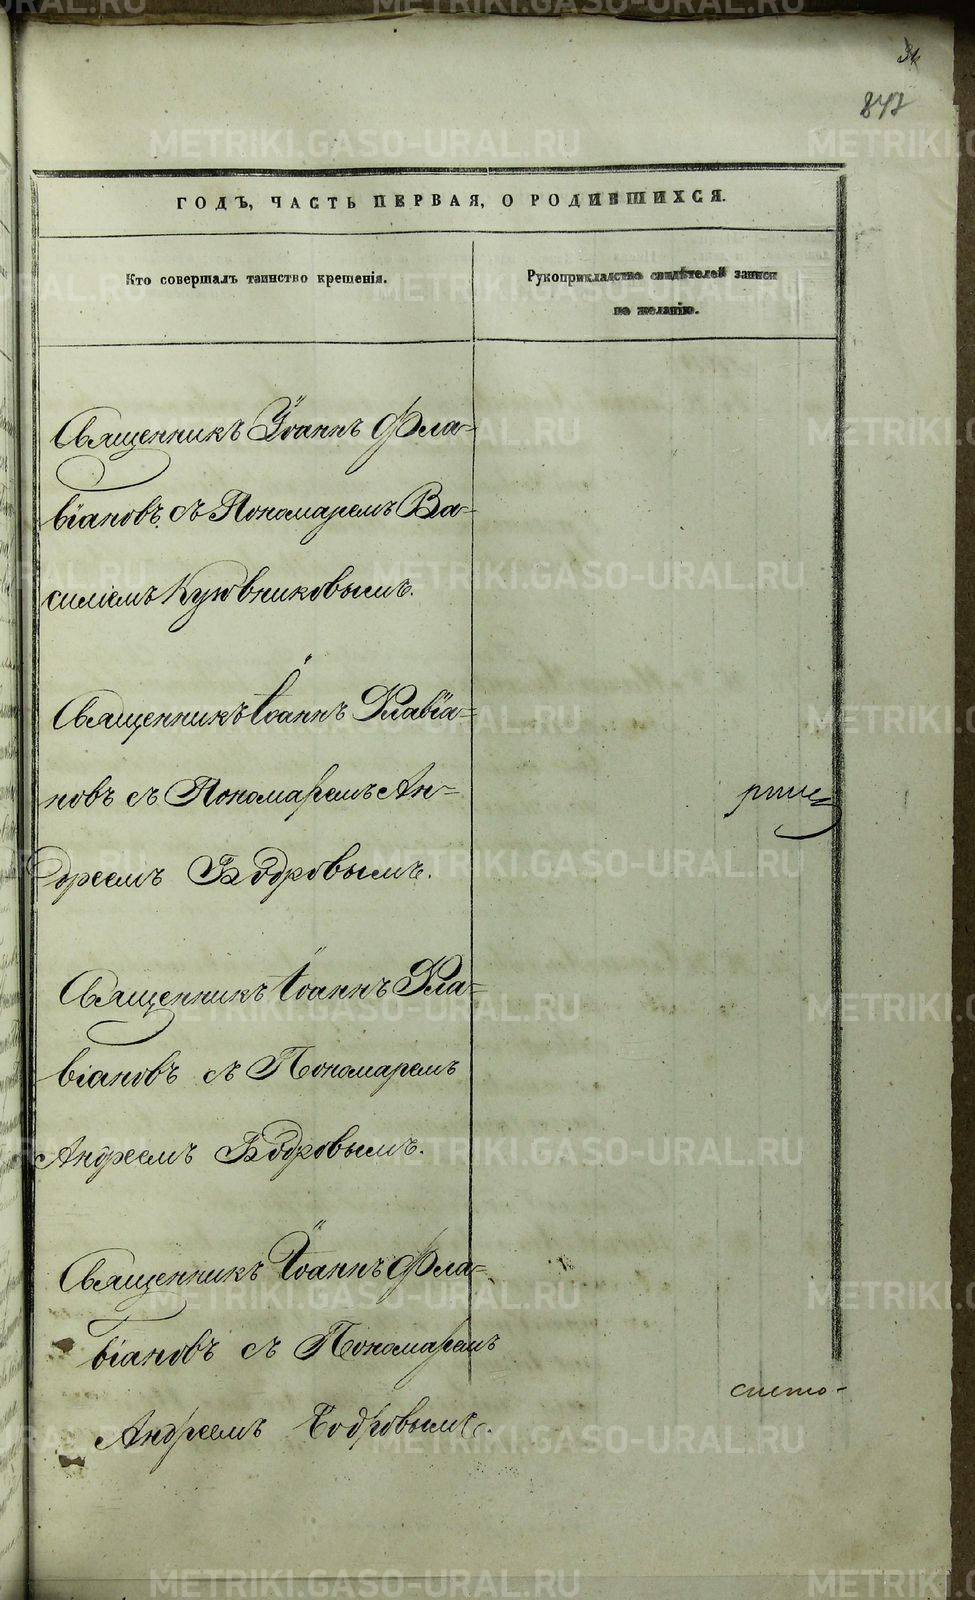 847
ГОДЪ, ЧАСТЬ ПЕРВАЯ, О РОДИВШИХСЯ.
Кто совершалъ таинство крещенія.
Рукоприкладство свидѣтелей записи
по желанію.
Священникъ Іоаннъ Фла-
віановъ съ Пономаремъ Ва-
силіемъ
Священникъ Іоаннъ Флавіа-
новъ съ Пономаремъ Ан-
дреемъ Бодровымъ.
Священникъ Іоаннъ Фла-
віановъ съ Пономаремъ
Андреемъ Бодровымъ.
Священникъ Іоаннъ Фла-
віановъ съ Пономаремъ
Андреемъ Бодровымъ.
METRIKI.GASO-URAL.RU